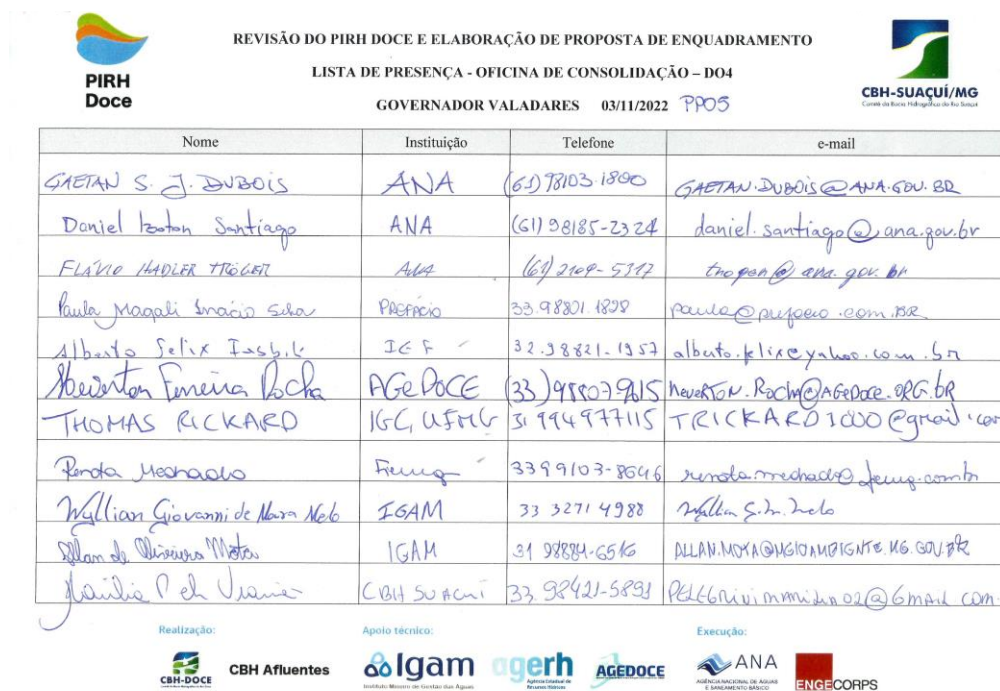 PIRH
Doce
REVISÃO DO PIRH DOCE E ELABORAÇÃO DE PROPOSTA DE ENQUADRAMENTO
LISTA DE PRESENÇA - OFICINA DE CONSOLIDAÇÃO – DO4
GOVERNADOR VALADARES 03/11/2022 PP05
CBH-SUAÇUÍ/MG
Comitê da Bacia Hidrográfica do Rio Suaçuí
Nome Instituição Telefone e-mail
GAETAN S. J. DUBOIS ANA (61) 98103.1800 GAETAN.DUBOIS@ANA.GOV.BR
Daniel Izoton Santiago ANA (61) 98185-2324 daniel.santiago@ana.gov.br
FLÁVIO HADLER TRÖGER ANA (61) 2109-5317 @ana.gov.br
Paula Magali Inácio Silva PREFÁCIO 33.98801.1828 paula@prefacio.com.BR
Alberto Felix IEF 32.98821-1957 alberto.felix@yahoo.com.br
Ferreira Rocha AGEDOCE (33) 98807-9615 neverton.Rocha@AGEDOCE.ORG.bR
THOMAS RICKARD IGC, UFMG 31 994977115 TRICKARD1000@gmail.com
Renata Medrado Fiemg 3399103-8646 renata.medrado@fiemg.com.br
Wyllian Giovanni de Moura Melo IGAM 33 3271 4988 Wyllian G. M. Melo
Allan de Oliveira Mota IGAM 31 98884-6516 ALLAN.MOTA@MEIOAMBIENTE.MG.GOV.BR
Marília P Viana CBH SUAÇUÍ 33.98421-5891
Realização:
Apoio técnico:
Execução:
CBH-DOCE
CBH Afluentes
Igam
Instituto Mineiro de Gestão das Águas
agerh
Agência Estadual de
Recursos Hídricos
AGEDOCE
ANA
AGÊNCIA NACIONAL DE ÁGUAS
E SANEAMENTO BÁSICO
ENGECORPS